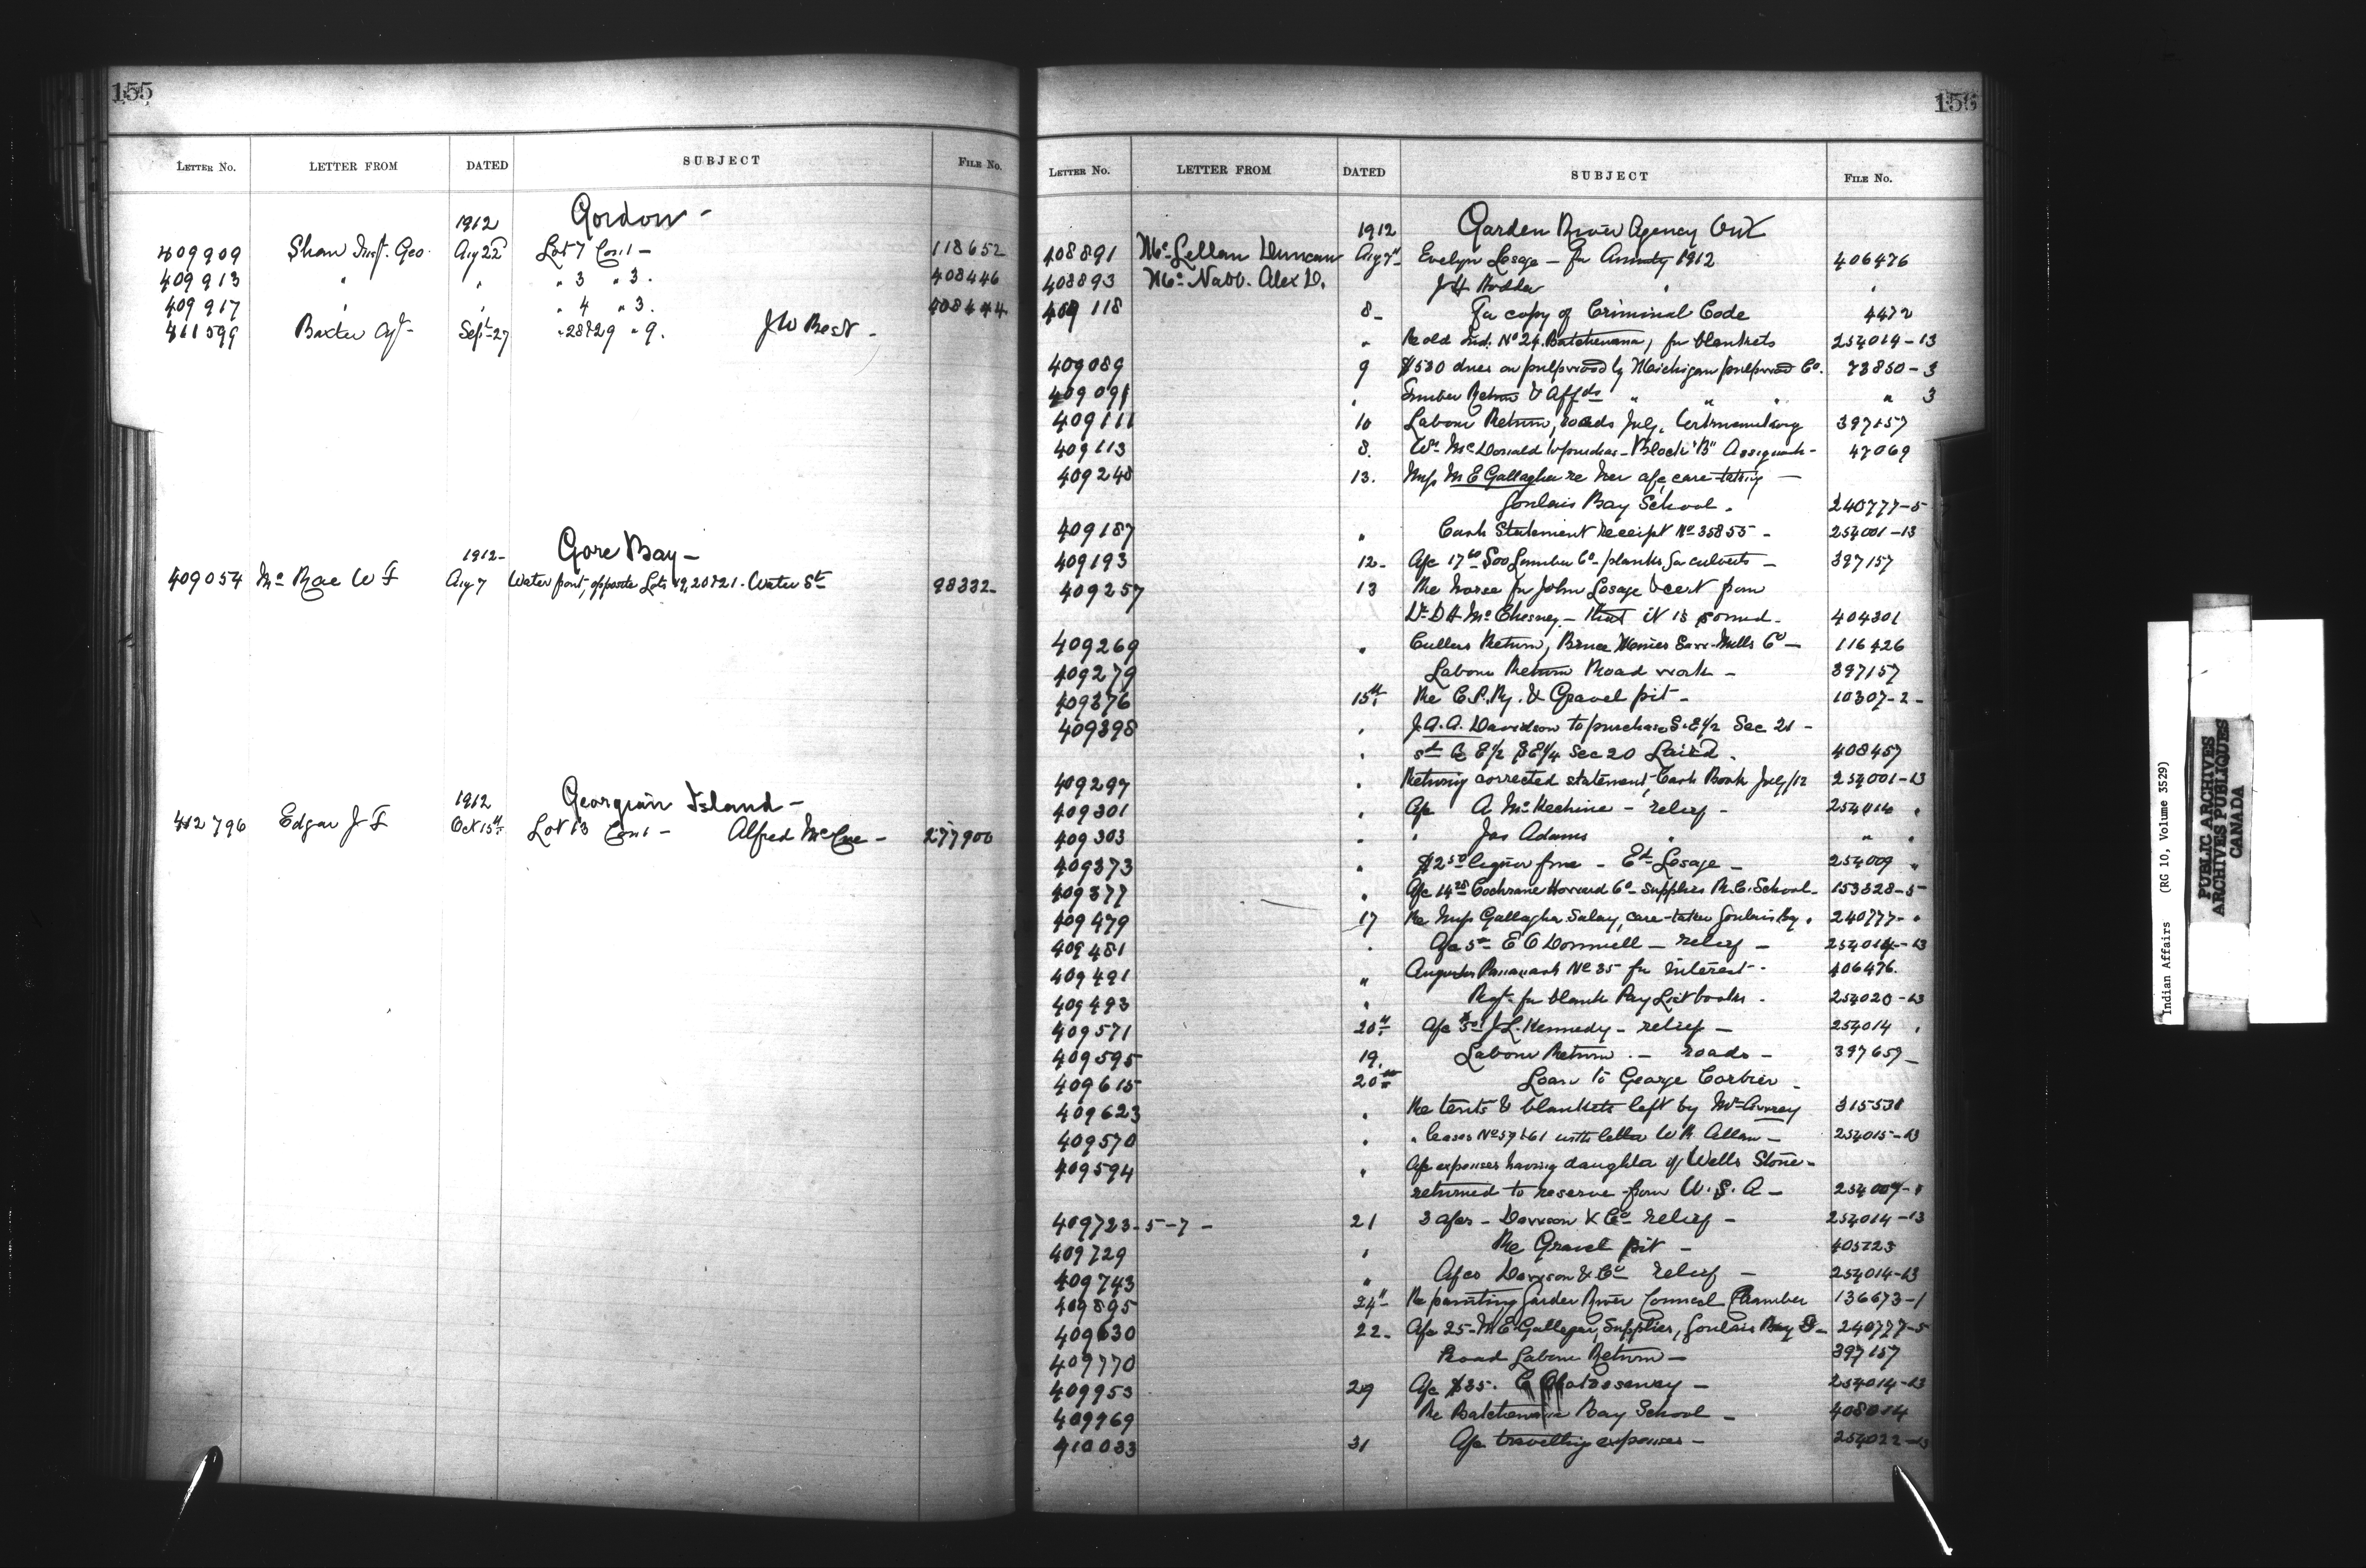 155
LETTER NO. LETTER FROM DATED SUBJECT FILE NO.
1912 Gordon -
409909 Shaw Geo. Aug 22d Lot 7 Con 1 - 118652
409913 " " " 3 " 3. 408446
409917 " " " 4 " 3. 408444
411599 Baxter Agt Sept 27 " 28 & 29 " 9. J W Best -
1912 - Gore Bay -
409054 Mc Rae W F Aug 7 Water front, opposite Lots 19, 20 & 21 - Water St 98332 -
1912 Georgian Island -
412796 Edgar J F Oct 15th Lot 13 Con 1 - Alfred McCue - 277900
156
LETTER NO. LETTER FROM DATED SUBJECT FILE NO.
1912 Garden River Agency Ont
408891 Mc Lellan Duncan Aug 7th Evelyn Lesage - for Annuity 1912 406476
408893 Mc Nabb. Alex D. J H Hodder " "
409118 8 - For copy of Criminal Code 4472
" Re old Ind. No 24 Batchewana, for blankets 254014-13
409089 9 $530 dues on pulpwood by Michigan pulpwood Co. 73850-3
409091 " Timber Return & Affds " " " " 3
409111 10 Labour Return, roads July, 397157
409113 8. Wm McDonald to purchase Block "B" 47069
409248 13. Miss M E Gallagher re her a/c, care-taking -
Goulais Bay School. 240777-5
409187 " Cash Statement receipt No 35855 - 254001-13
409193 12 - A/c 17 Soo Lumber Co - planks for culverts - 397157
409257 13 Re horse for John Lesage & cert from
Dr D H McChesney - that it is sound - 404301
409269 " Cullers Return, Bruce Mines Saw-Mills Co - 116426
409279 Labour Return Road work - 397157
409376 15th Re C.P.Ry. & Gravel pit - 10307-2 -
409398 " J.A.A. Davidson to purchase S.E 1/2 Sec 21 -
" E 1/2 SE 1/4 Sec 20 Laird. 408457
409297 " Returning corrected statement, Cash Book July/12 254001-13
409301 " A/c A. McKechnie - relief - 254014 "
409303 " " Jas Adams " " "
409373 " $2 50 liquor fine - Ed Lesage - 254009 "
409377 " A/c 14 Cochrane Howard Co - Supplies R.C. School - 153328-5
409479 17 Re Miss Gallagher Salary, care-taker Goulais Bay. 240777- "
409481 " A/c 5 E O Donnell - relief - 254014-13
409491 " No 35 for interest - 406476.
409493 " Reqt for blank Pay List books - 254020-13
409571 20th A/c J.L. Kennedy - relief - 254014 "
409595 19. Labour Return - roads - 397657 -
409615 20th Loan to George Corbier -
409623 " Re tents & blankets left by 315531
409570 " " Leases No 59 & 61 with letter W R Allan - 254015-13
409594 " A/c expenses having daughter of Wells Stone -
returned to reserve from U.S.A - 254007- "
409723-5-7 - 21 3 a/cs - Dawson & Co relief - 254014-13
409729 " Re Gravel pit - 405723
409743 " A/cs Dawson & Co relief - 254014-13
409895 24th Re painting Garden River Council Chamber 136673-1
409630 22 - A/c 25 - M E Gallagher, Supplies, Goulais Bay S - 240777-5
409770 Road Labour Return - 397157
409953 29 A/c $35. 254014-13
409969 Re Batchewana Bay School - 408014
410033 31 A/c travelling expenses - 254022-13
Indian Affairs (RG 10, Volume 3529)
PUBLIC ARCHIVES
ARCHIVES PUBLIQUES
CANADA